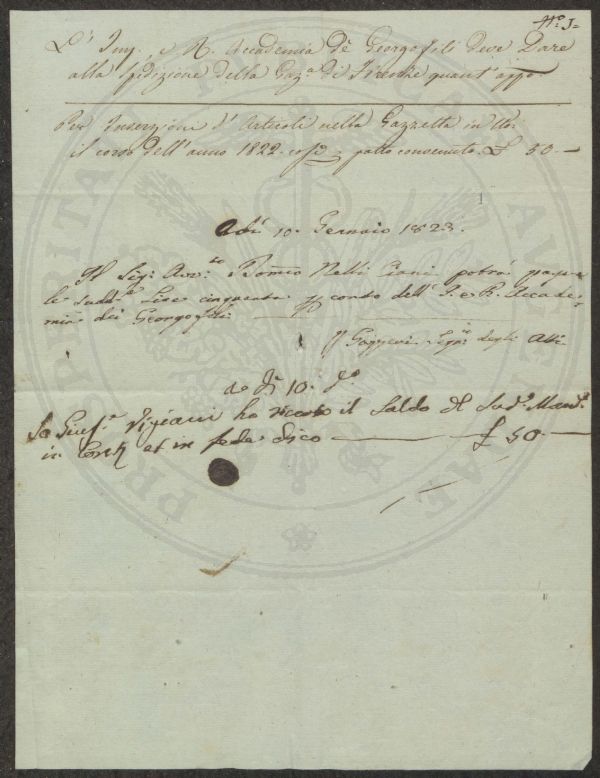 N.° 1=
L' Imp. e R. Accademia de Georgofili deve Dare
alla Spedizione della Gaz.a di Firenze quant' app.o
Per Inserzioni d' Articoli nella Gazzetta in tto:
il corso dell' anno 1822. così p patto convenuto. £ 50.—
Adì 10. Gennaio 1823.
Il Sig.r Avv.to Romeo Nelli Ciani potrà pagare
le sudd.e Lire cinquanta p conto dell' I. e R. Accade-
mia dei Georgofili
Gazzeri Seg.rio degli Atti
a dì 10. d.o
Io Gius.e Vigiani ho riceuto il Saldo del Sud.o Mand.o
in Cont.i et in fede dico £ 50.
PROSPERITATI PUBLICAE AUGENDAE